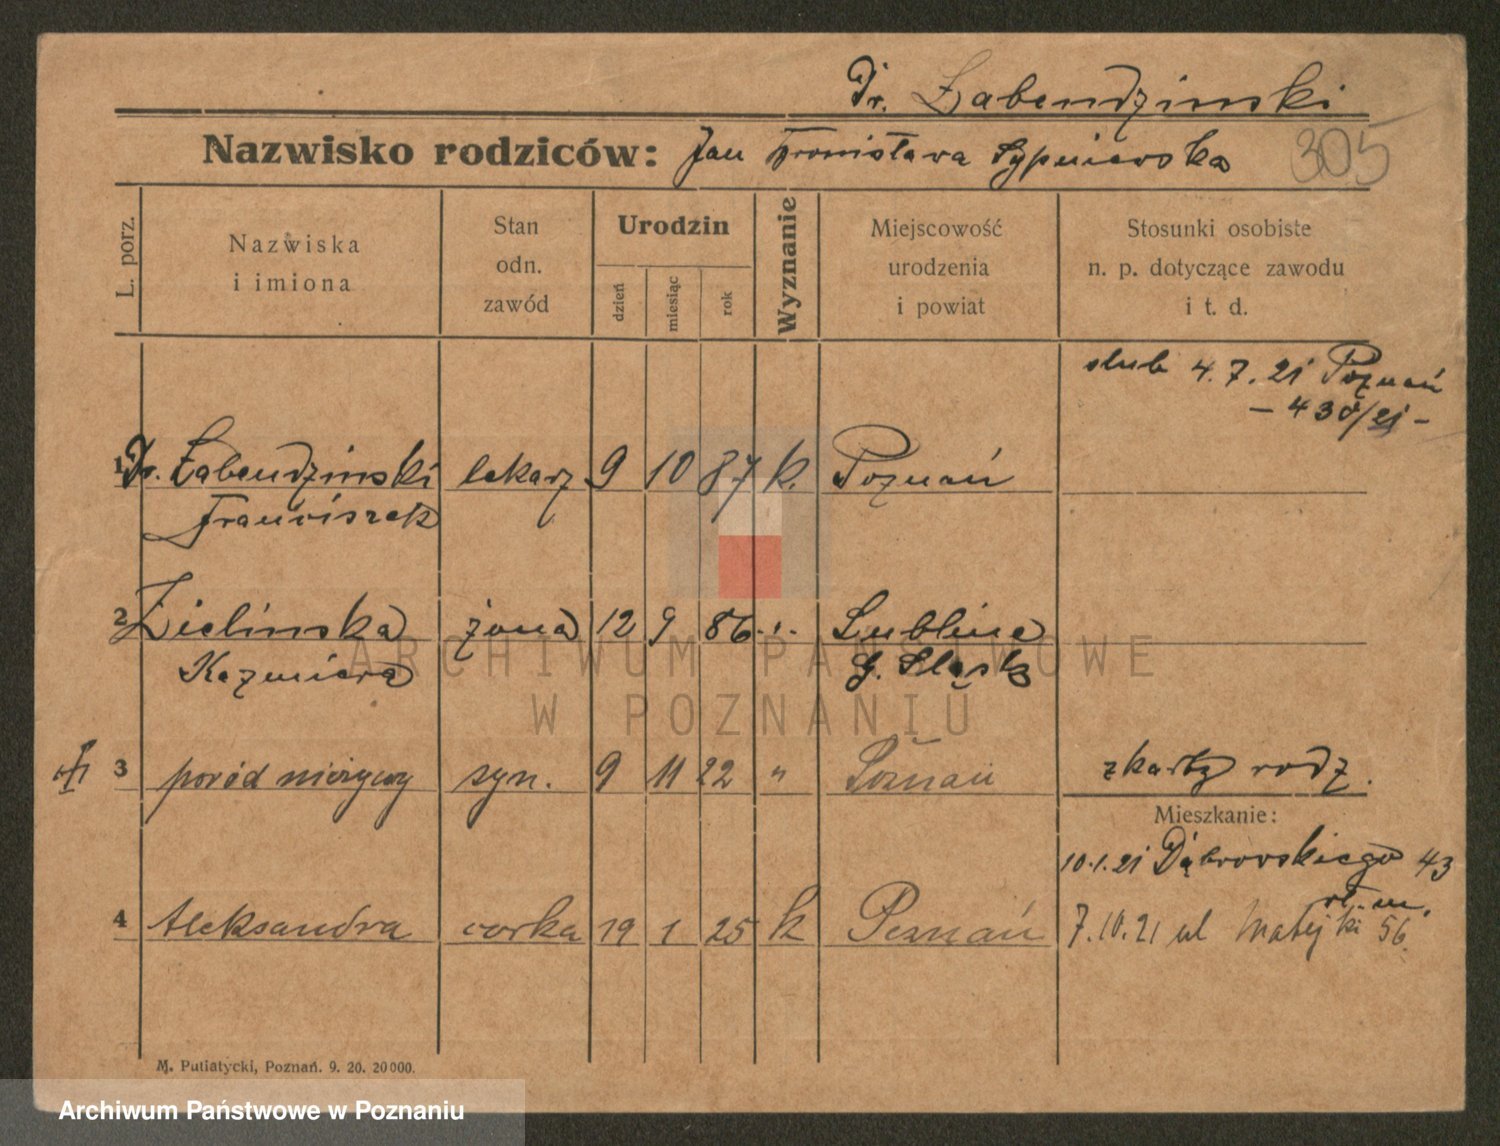 Dr. Żabendzinski
Nazwisko rodziców: Jan Bronisława Sypniewska 305
L. porz.
Nazwiska
i imiona
Stan
odn.
zawód
Urodzin
dzień
miesiąc
rok
Wyznanie
Miejscowość
urodzenia
i powiat
Stosunki osobiste
n. p. dotyczące zawodu
i t. d.
slub 4.7.21 Poznań
– 430/21 –
1 Dr. Żabendzinski lekarz 9 10 87 k. Poznań
Franciszek
2 Zielinska żona 12 9 86 . . . Lublinc
Kazmiera G. Sląsk
3 poród nieżywy syn. 9 11 22 " Poznań z karty rodz.
Mieszkanie:
10.1.21 Dąbrowskiego 43
4 Aleksandra corka 19 1 25 k Poznań 7.10.21 ul Matejki 56.
M. Putiatycki, Poznań. 9. 20. 20000.
ARCHIWUM PAŃSTWOWE
W POZNANIU
Archiwum Państwowe w Poznaniu